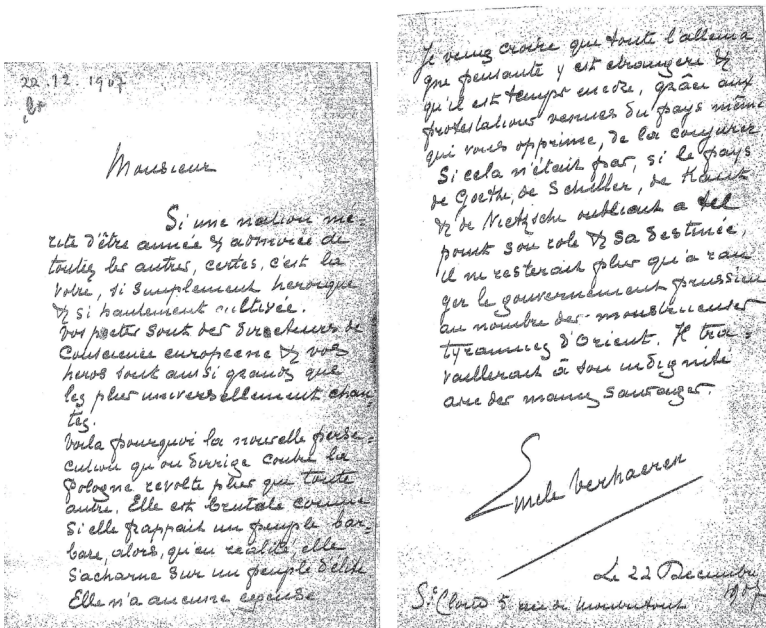 22.12.1907
Monsieur
Si une nation mé-
rite d'être aimée & admirée de
toutes les autres, certes, c'est la
vôtre, si simplement heroique
& si hautement cultivée.
Vos poètes sont des directeurs de
Conscience européene & vos
heros sont aussi grands que
les plus universellement chan-
tés.
Voila pourquoi la nouvelle persé-
cution qu'on dirrige contre la
Pologne revolte plus que toute
autre. Elle est brutale comme
si elle frappait un peuple bar-
bare, alors, qu'en realité, elle
s'acharne sur un peuple d'élite
Elle n'a aucune
Je veux croire que toute l'allema
gne pensante y est etrangere &
qu'il est temps encore, grâce aux
protestations venues du pays même
qui vous opprime, de la conjurer.
Si cela n'était pas, si le pays
de Goethe, de Schiller, de Kant
& de Nietzsche oubliait a tel
point son role & sa destinée,
il ne resterait plus qu'a ran
ger le gouvernement prussien
au nombre des monstrueuses
tyrannies d'Orient. Il tra-
vaillerait à son indignité
avec des mains sauvages.
Emile Verhaeren
Le 22 Decembre
1907
St Cloud 5 rue de Montretout